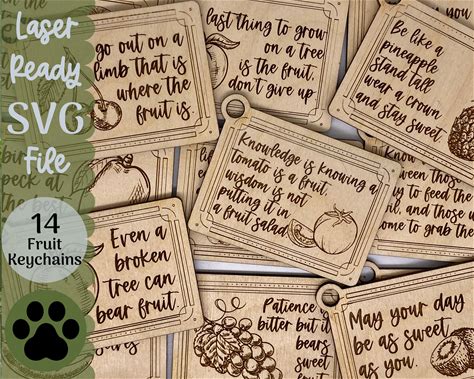 Laser
Ready
SVG
File
14
Fruit
Keychains
go out on a
limb that is
where the
fruit is.
last thing to grow
on a tree
is the fruit,
don't give up
Be like a
pineapple
Stand tall
wear a crown
and stay sweet
Knowledge is knowing a
tomato is a fruit,
wisdom is not
putting it in
a fruit salad
peck at
the best
Even a
broken
tree can
bear fruit.
between those
to feed the
and those
come to grab the
Patience
bitter but it
bears
sweet
fruit
May your day
be as sweet
as you.